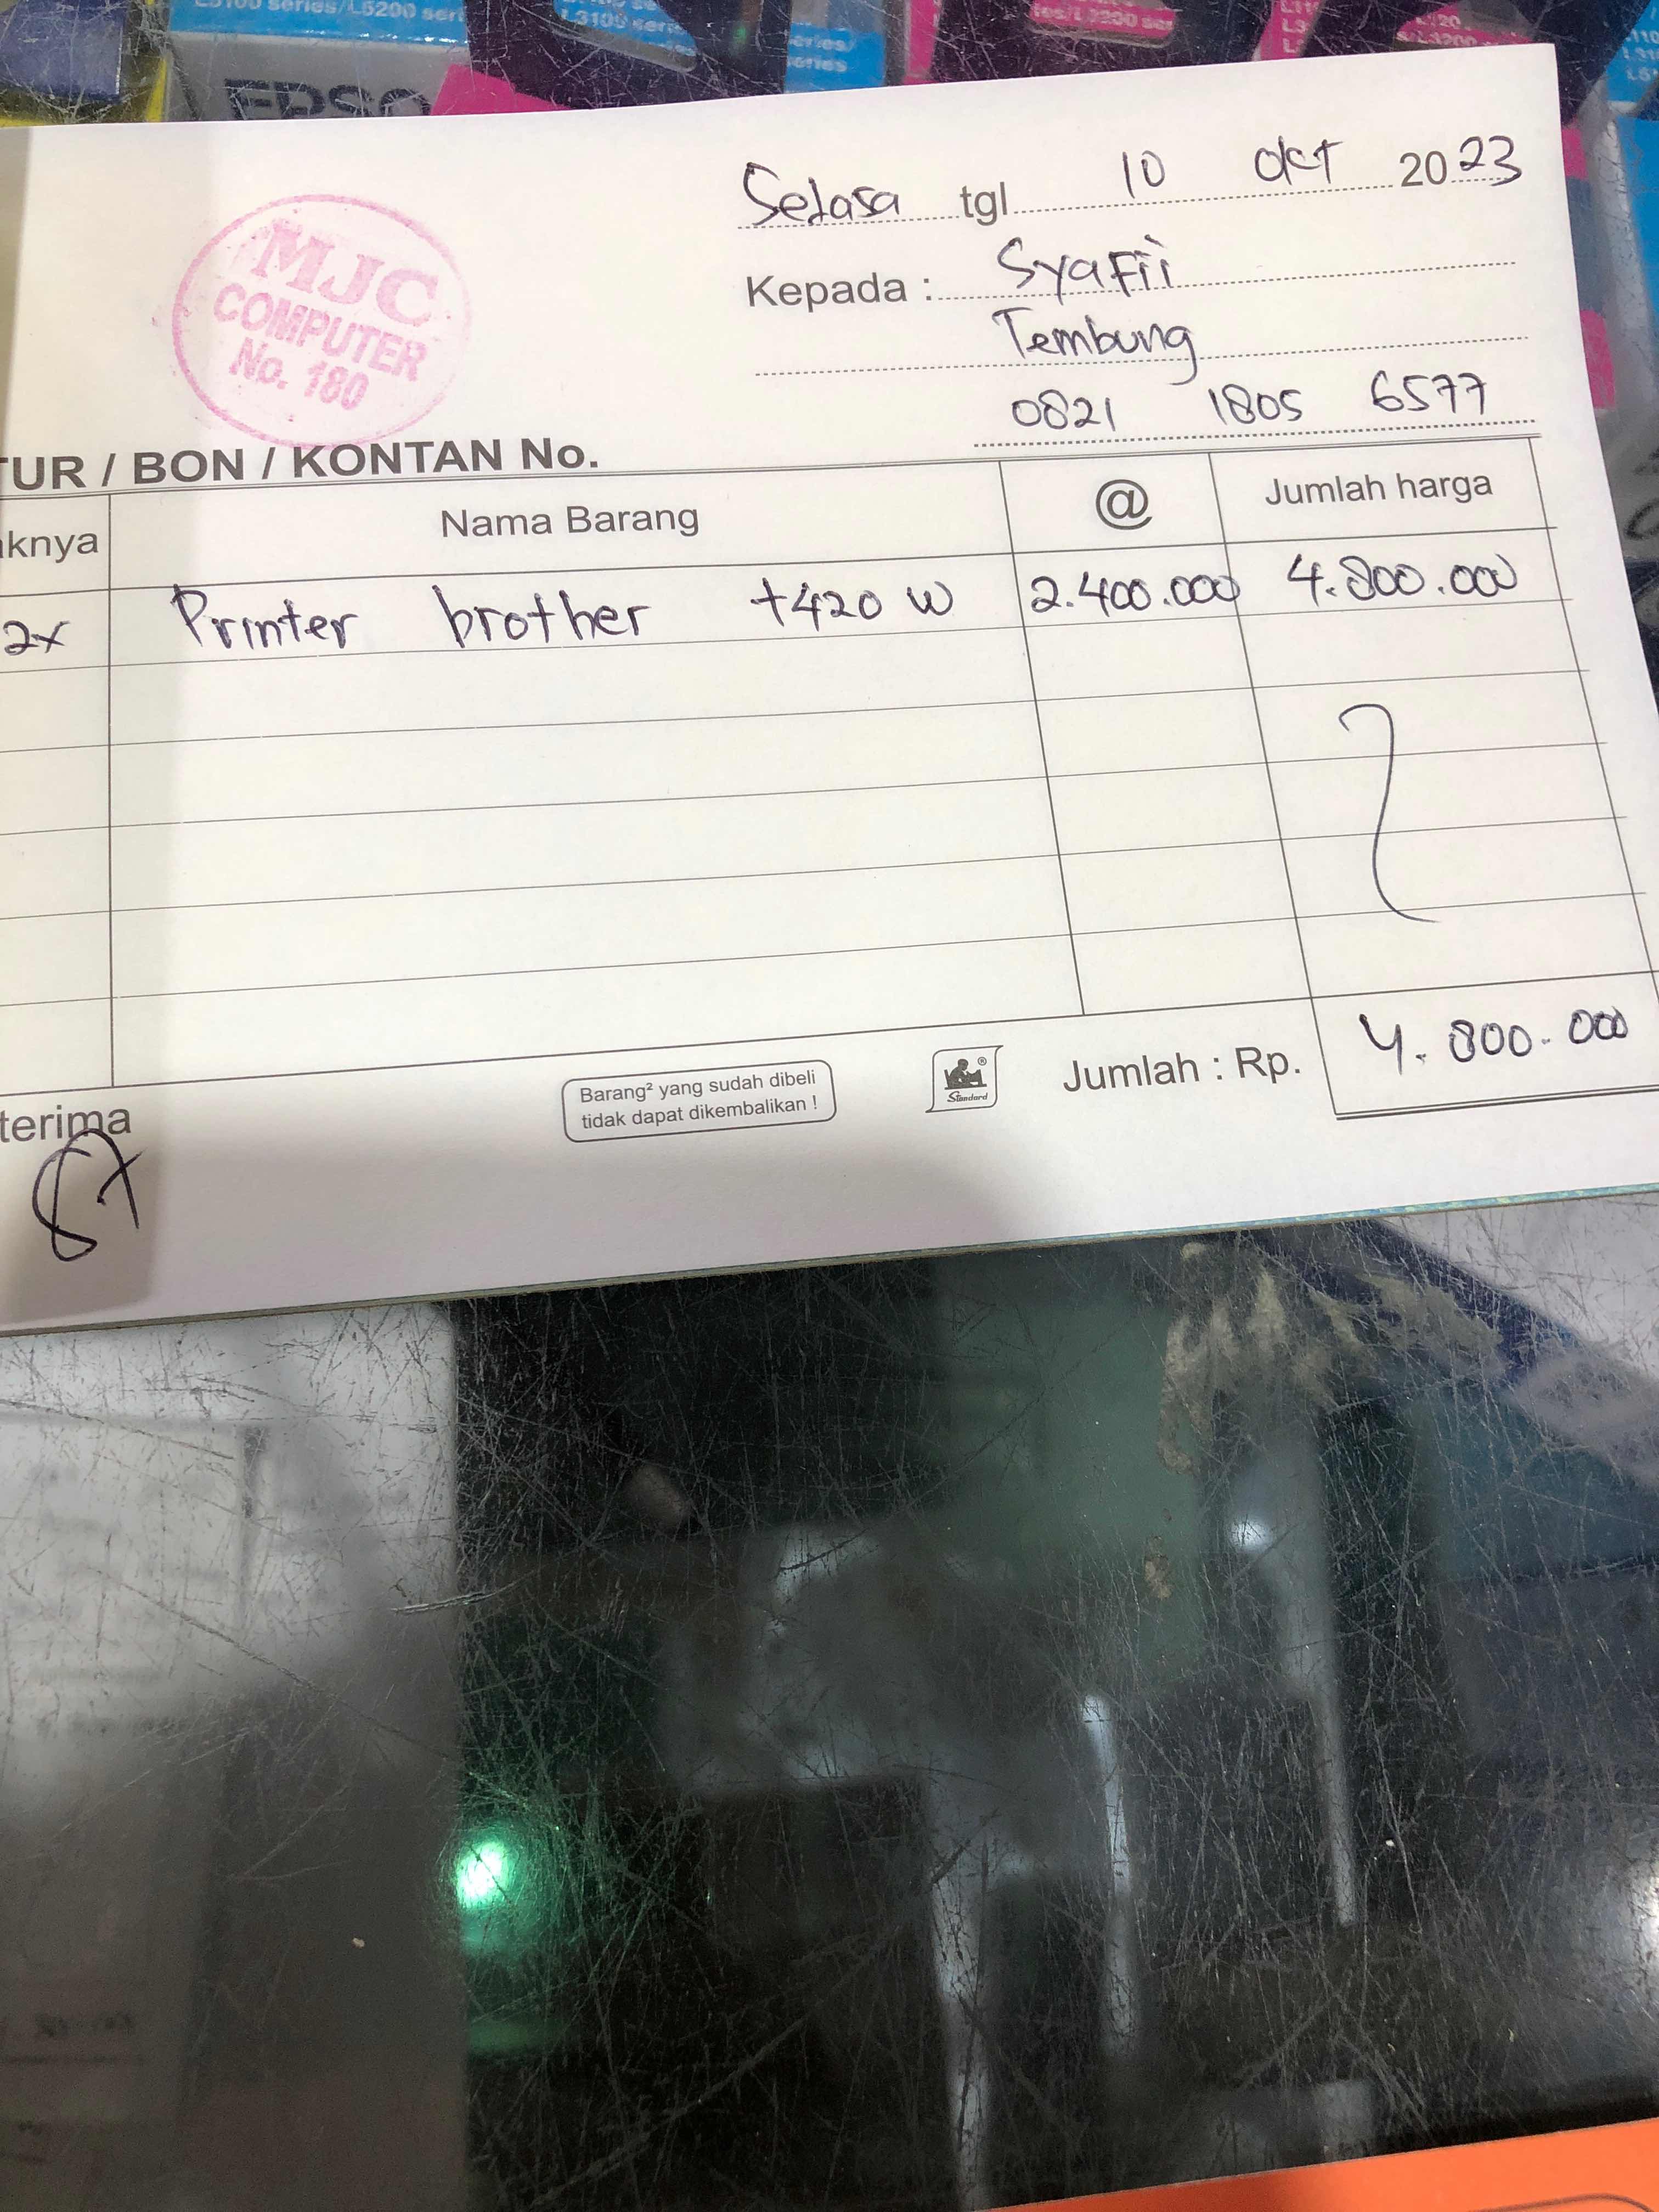 L5100 series/L5200 seri
L3100 seri
EPSO
Selasa tgl 10 Okt 2023
MJC
COMPUTER
No. 180
Kepada : Syafii
Tembung
0821 1805 6577
TUR / BON / KONTAN No.
knya Nama Barang @ Jumlah harga
2x Printer brother t420 w 2.400.000 4.800.000
Jumlah : Rp. 4.800.000
Barang² yang sudah dibeli
tidak dapat dikembalikan !
Standard
terima